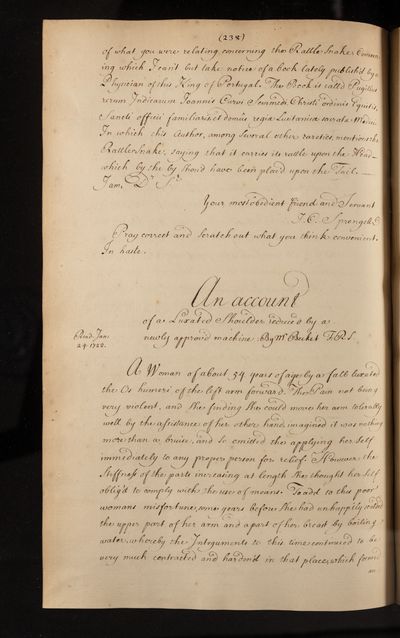 (238)
of what you were relating concerning the Rattle Snake: Concern
ing which I can't but take notice of a book lately publish'd by a
Physician of this King of Portugal. The Book is call'd Pugillus
rerum Indicarum Joannis Curvi Semmedi Christi ordinis Equitis,
Sancti officii familiaris et domus regiæ Lusitanicæ Medici
In which this Author, among Several other rarities, mentions the
Rattlesnake, saying that it carries its rattle upon the Head
which by the by should have been plac'd upon the Tail.
I am, Dr. Sr.
Your most obedient friend and Servant
J. C. Sprengell
Pray correct and scratch out what you think convenient.
In haste.
An account
of a Luxated Shoulder reduced by a
newly approv'd machine. By Mr. Becket F.R.S.
Read Jan:
24. 1722.
A Woman of about 54 years of age by a fall luxated
the Os humeri of the left arm forward. The Pain not being
very violent, and She finding She could move her arm tolerably
well by the assistance of her other hand imagined it was nothing
more than a bruise, and so omitted the applying her self
immediately to any proper person for relief. However the
Stiffness of the parts increasing at length She thought her self
oblig'd to comply with the use of means. To add to this poor
womans misfortune, some years before She had unhappily scalded
the upper part of her arm and a part of her breast by boiling
water, whereby the Integuments to this time continued to be
very much contracted and harden'd in that place, which form'd
an